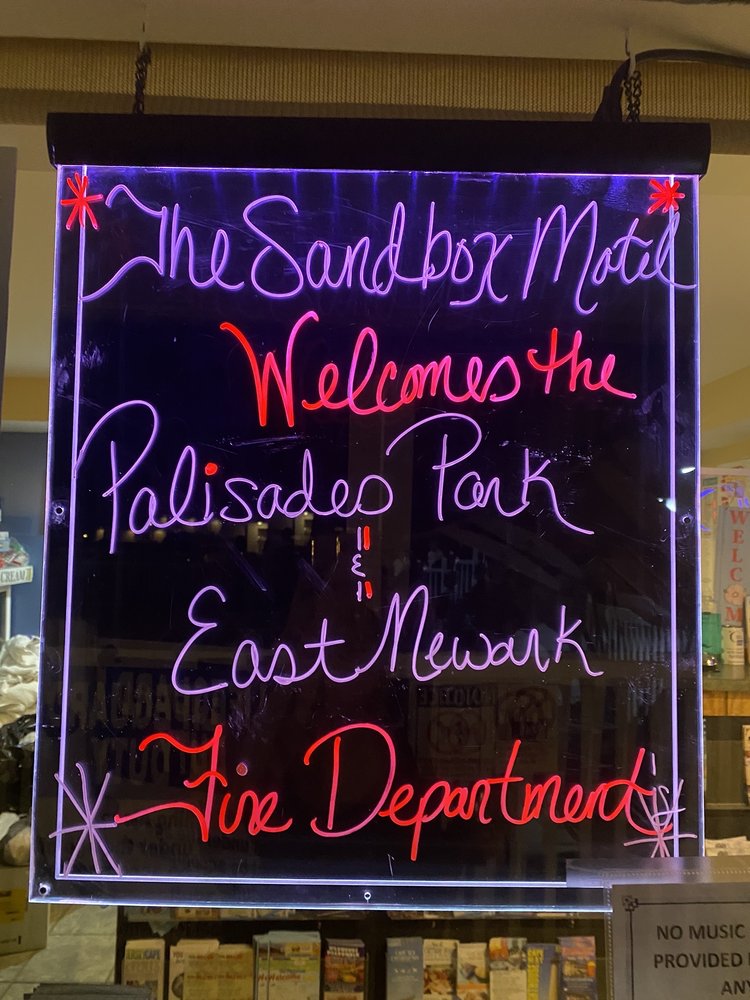 The Sandbox Motel
Welcomes the
Palisades Park
&
East Newark
Fire Department's
CREAM
WELCOM
NO MUSIC
PROVIDED
ANY